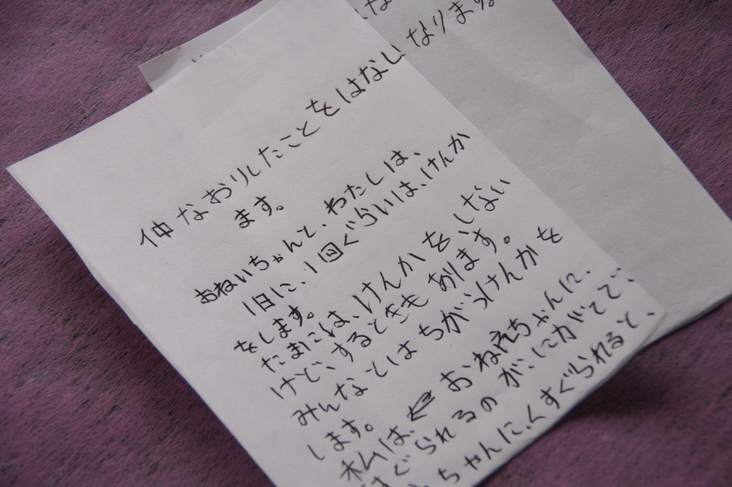 仲なおりしたことをはなし
ます。
おねいちゃんと、わたしは、
1日に、1回ぐらいは、けんか
をします。
たまには、けんかをしない
けど、するときもあります。
みんなとはちがうけんかを
します。
私は、おねえちゃんに、
すぐられるのが、にがてで、
ちゃんに、くすぐられると、
なります。